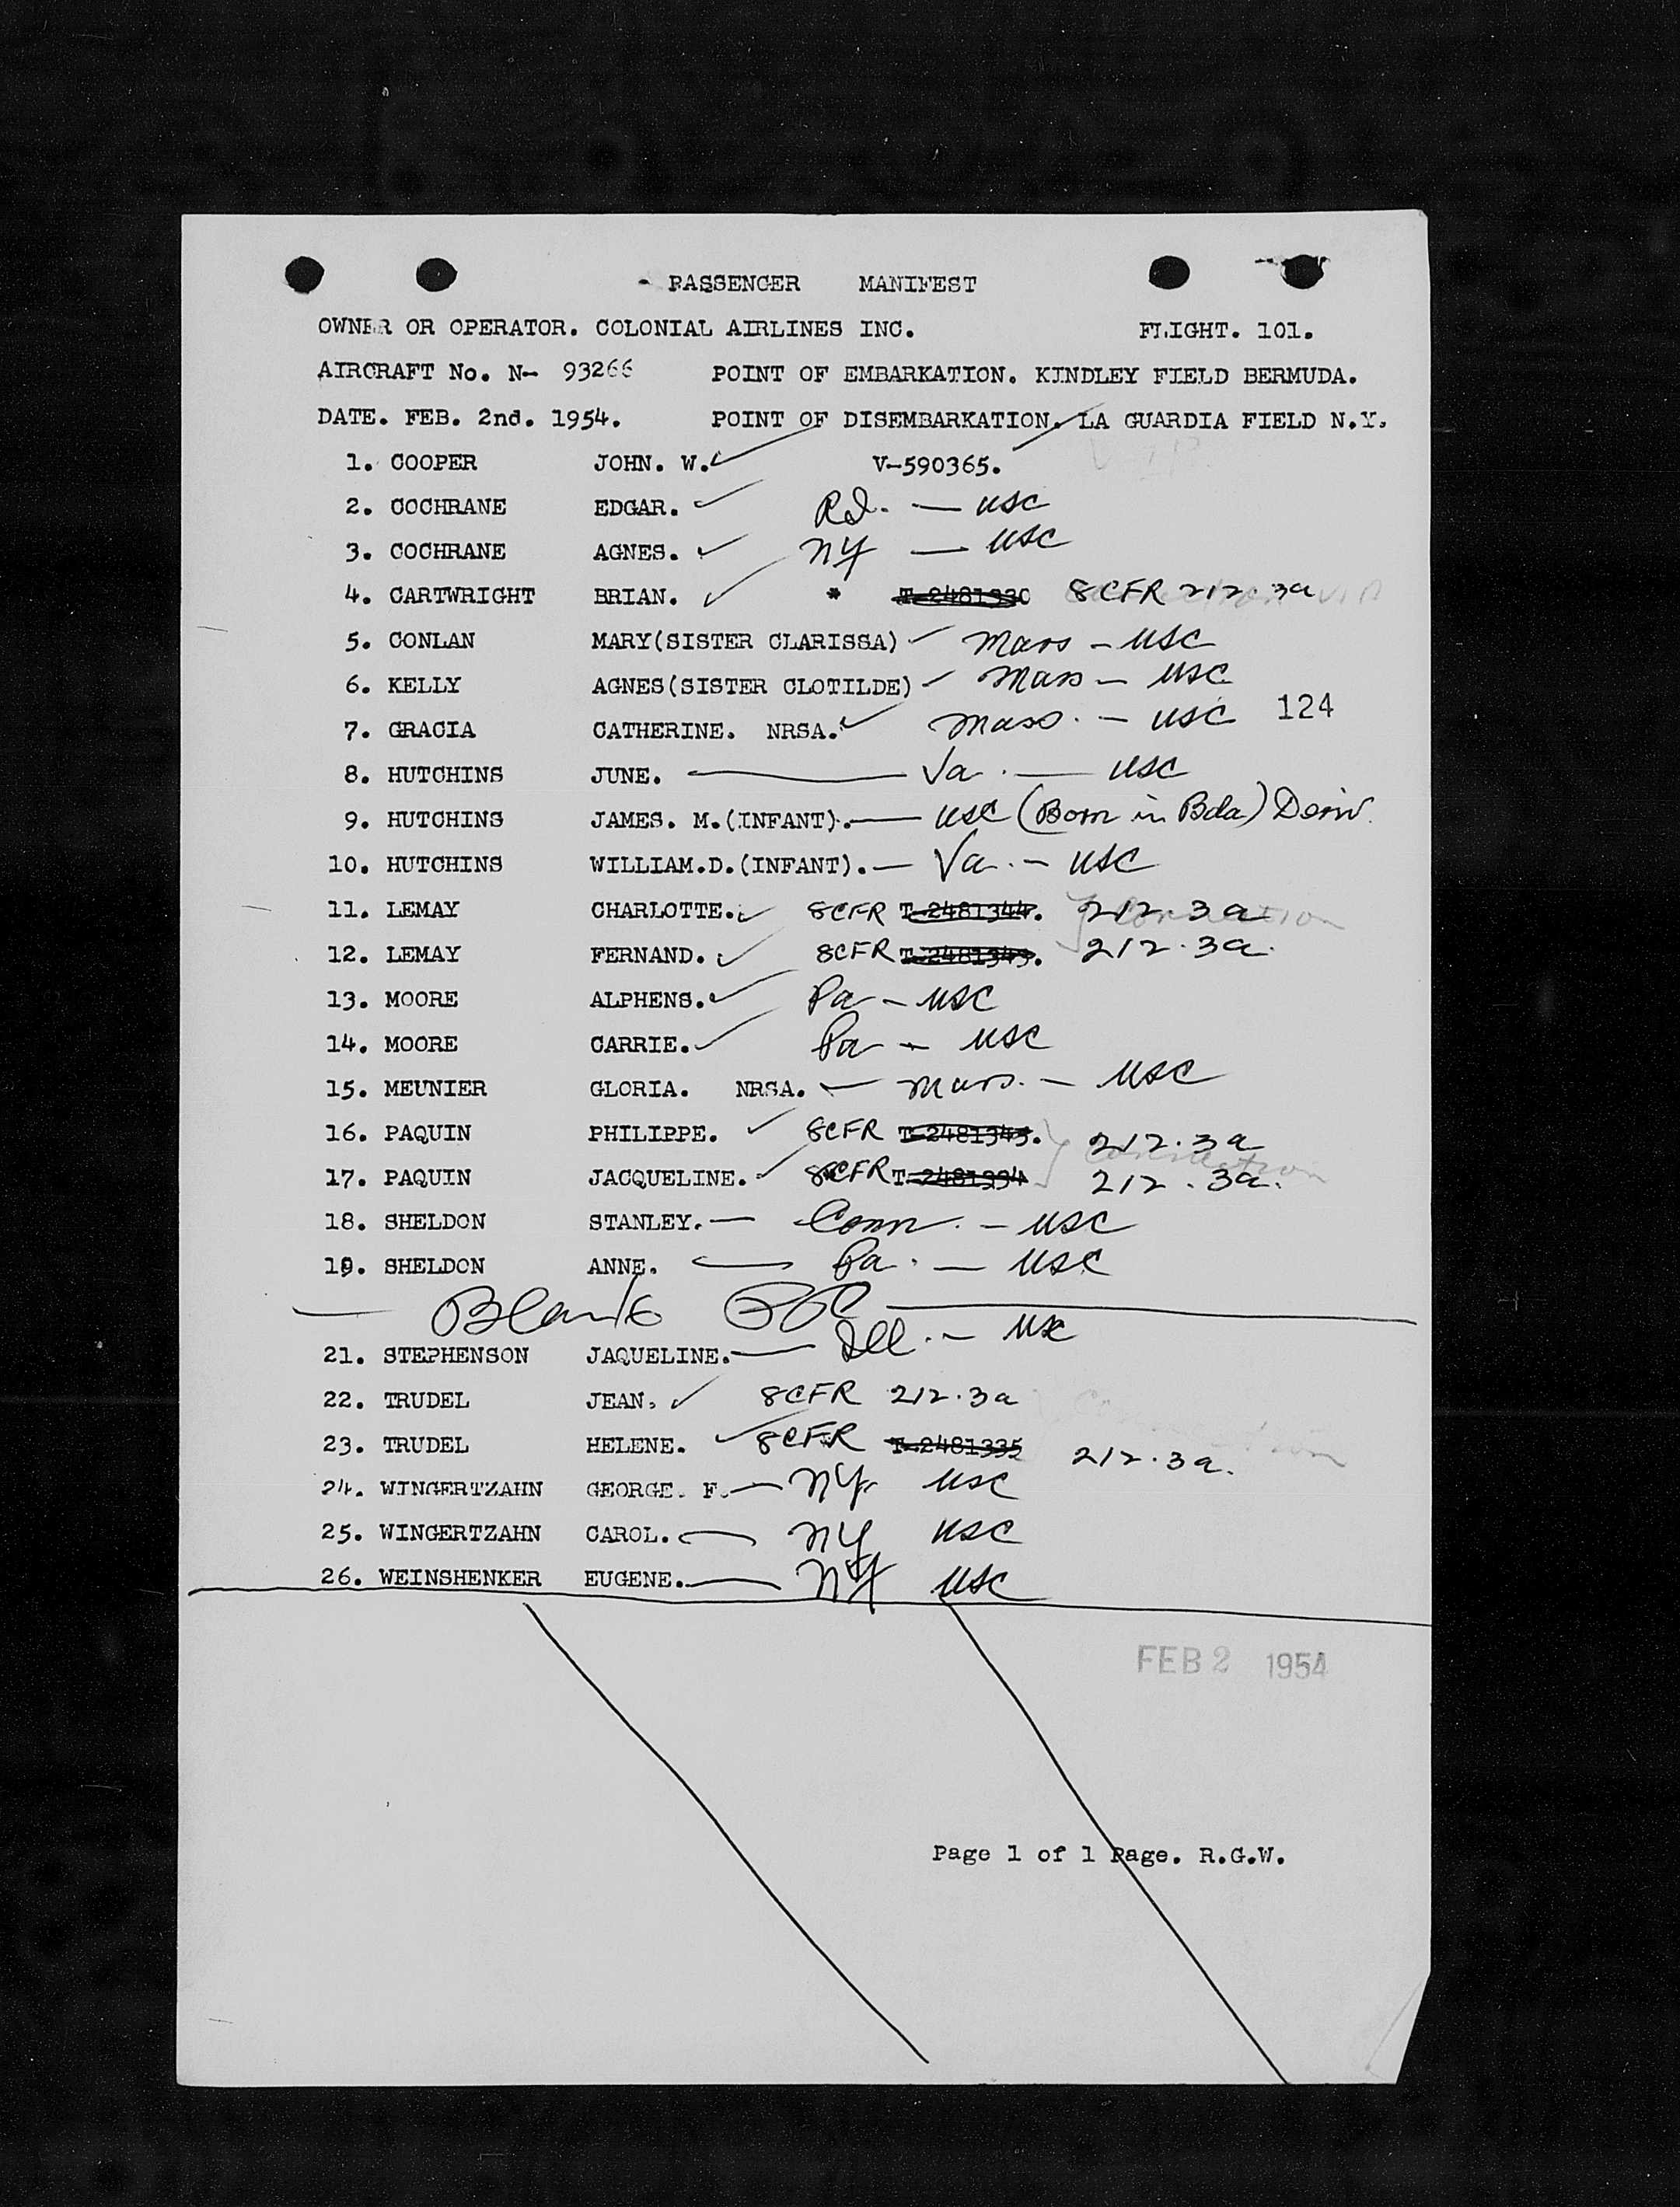 PASSENGER MANIFEST
OWNER OR OPERATOR. COLONIAL AIRLINES INC. FLIGHT. 101.
AIRCRAFT No. N- 93266 POINT OF EMBARKATION. KINDLEY FIELD BERMUDA.
DATE. FEB. 2nd. 1954. POINT OF DISEMBARKATION. LA GUARDIA FIELD N.Y.
1. COOPER JOHN. W. V-590365.
2. COCHRANE EDGAR. — USC
3. COCHRANE AGNES. NY — USC
4. CARTWRIGHT BRIAN. * T-2481330 8CFR 212.3a
5. CONLAN MARY(SISTER CLARISSA) Mass - USC
6. KELLY AGNES(SISTER CLOTILDE) Mass - USC
7. GRACIA CATHERINE. NRSA. Mass. - USC 124
8. HUTCHINS JUNE. — Va. — USC
9. HUTCHINS JAMES. M.(INFANT). — USC (Born in Bda) Deriv.
10. HUTCHINS WILLIAM.D.(INFANT). — Va. - USC
11. LEMAY CHARLOTTE. 8CFR T-2481344. 212.3a
12. LEMAY FERNAND. 8CFR 212.3a.
13. MOORE ALPHENS. Pa - USC
14. MOORE CARRIE. Pa - USC
15. MEUNIER GLORIA. NRSA. — Mass. - USC
16. PAQUIN PHILIPPE. 8CFR 212.3a
17. PAQUIN JACQUELINE. 8CFR T-2481334 212.3a.
18. SHELDON STANLEY. — Conn. - USC
19. SHELDON ANNE. — Pa. — USC
— Blank —
21. STEPHENSON JAQUELINE. — Ill. - USC
22. TRUDEL JEAN. 8CFR 212.3a
23. TRUDEL HELENE. 8CFR T-2481335 212.3a.
24. WINGERTZAHN GEORGE. F. — NY USC
25. WINGERTZAHN CAROL. — NY USC
26. WEINSHENKER EUGENE. — NY USC
FEB 2 1954
Page 1 of 1 Page. R.G.W.